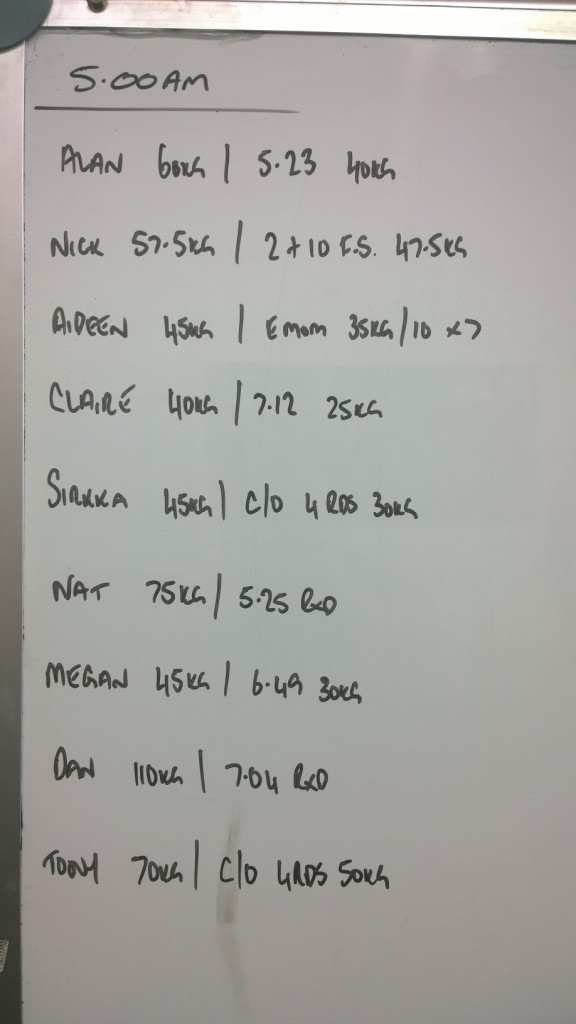 5.00AM
ALAN 60KG | 5.23 40KG
NICK 57.5KG | 2 + 10 F.S. 47.5KG
AIDEEN 45KG | EMOM 35KG/10 x7
CLAIRE 40KG | 7.12 25KG
SIRKKA 45KG | C/O 4 RDS 30KG
NAT 75KG | 5.25 RxD
MEGAN 45KG | 6.49 30KG
DAN 110KG | 7.04 RxD
TONY 70KG | C/O 4RDS 50KG